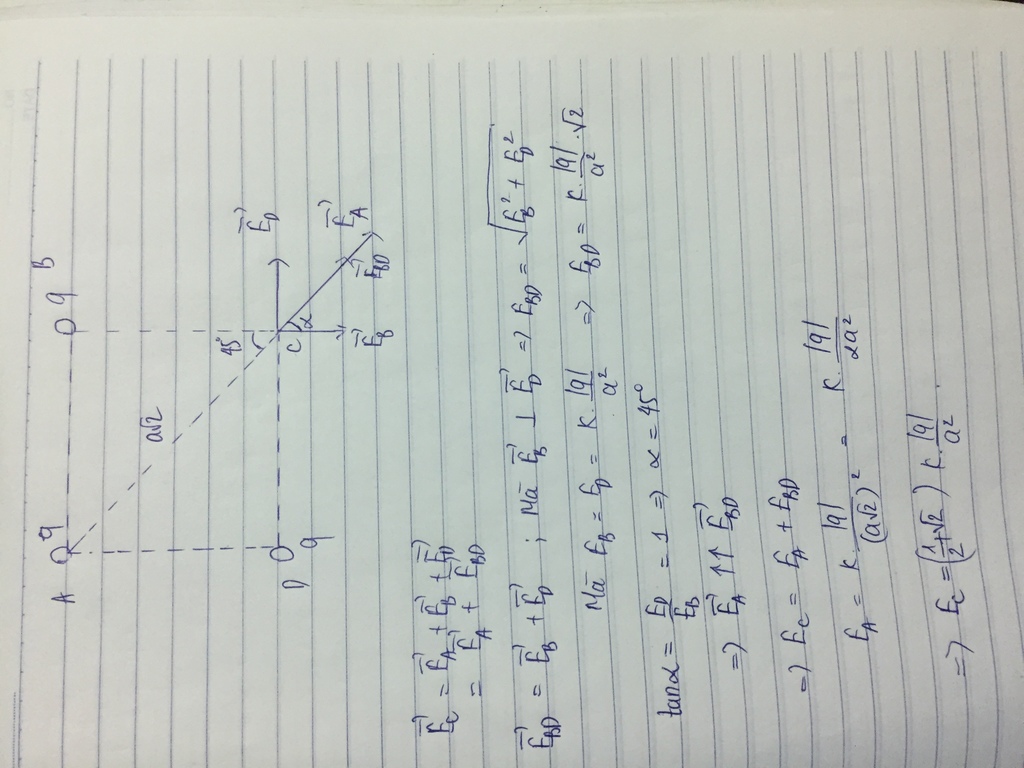 A q q B
a√2
45°
D q C α E⃗_D
E⃗_B E⃗_BD E⃗_A
E⃗_C = E⃗_A + E⃗_B + E⃗_D
= E⃗_A + E⃗_BD
E⃗_BD = E⃗_B + E⃗_D ; Mà E⃗_B ⊥ E⃗_D => E_BD = √(E_B² + E_D²)
Mà E_B = E_D = K.|q|/a² => E_BD = K.|q|/a².√2
tanα = E_D/E_B = 1 => α = 45°
=> E⃗_A ↑↑ E⃗_BD
=> E_C = E_A + E_BD
E_A = K.|q|/(a√2)² = K.|q|/2a²
=> E_C = (1/2+√2) K.|q|/a².